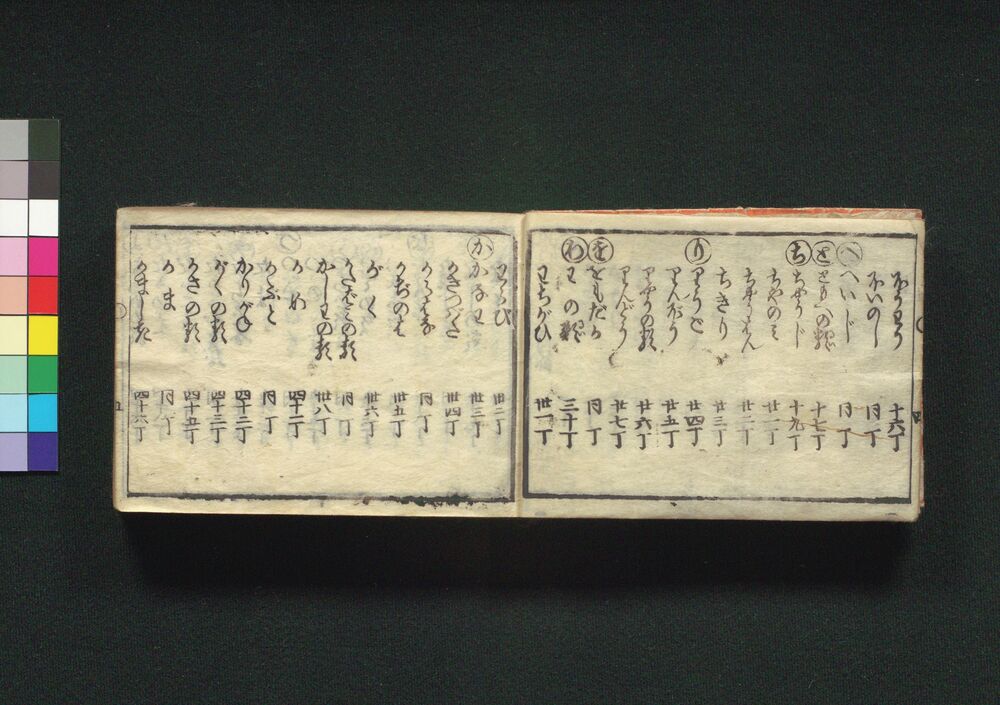 ほうわう 十六丁
同丁
へ へいじ 同丁
と の類 十七丁
ち ちやうじ 十九丁
ちやのミ 廿一丁
廿二丁
ちきり 廿三丁
り りうご 廿四丁
りんだう 廿五丁
の類 廿六丁
廿七丁
を をもだか 同丁
わ わの類 三十丁
わちがひ 卅一丁
わらび 卅二丁
か かなわ 卅三丁
かきつばた 卅四丁
からはな 同丁
かぢのは 卅五丁
がく 卅六丁
かたばミの類 同丁
かしわの類 卅八丁
四十一丁
かぶと 同丁
かりがね 四十二丁
の類 四十三丁
かさの類 四十五丁
かま 同丁
四十六丁